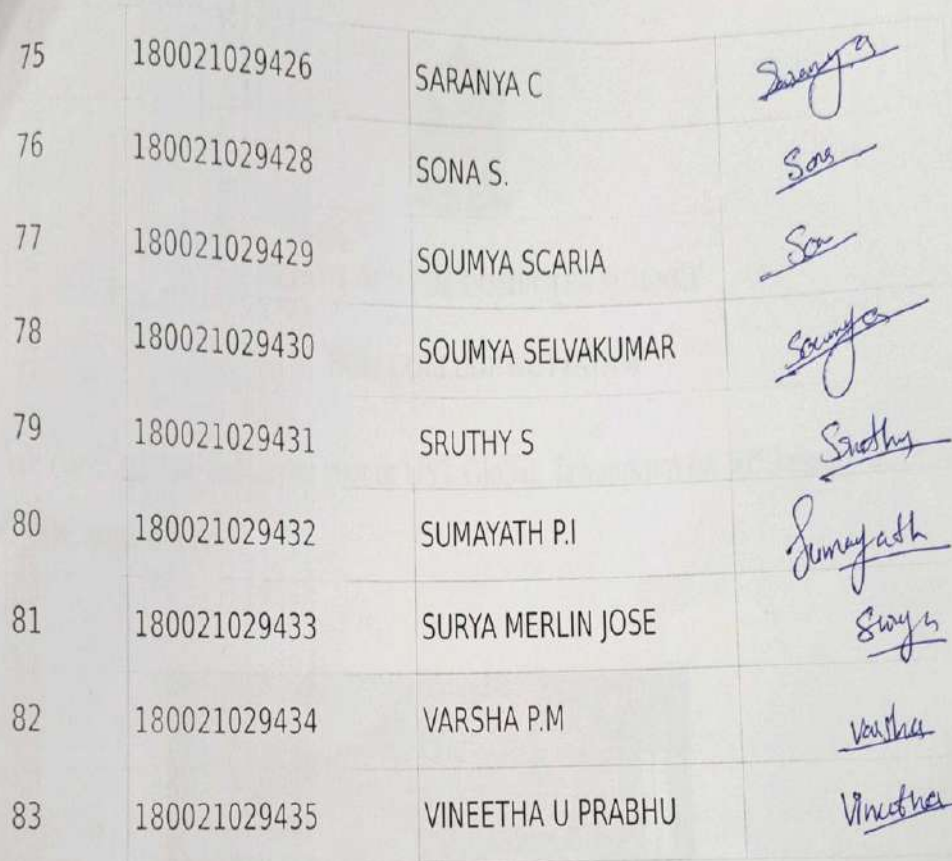 75 180021029426 SARANYA C Saranya
76 180021029428 SONA S. Sona
77 180021029429 SOUMYA SCARIA Sou
78 180021029430 SOUMYA SELVAKUMAR Soumya
79 180021029431 SRUTHY S Sruthy
80 180021029432 SUMAYATH P.I Sumayath
81 180021029433 SURYA MERLIN JOSE Surya
82 180021029434 VARSHA P.M Varsha
83 180021029435 VINEETHA U PRABHU Vineetha